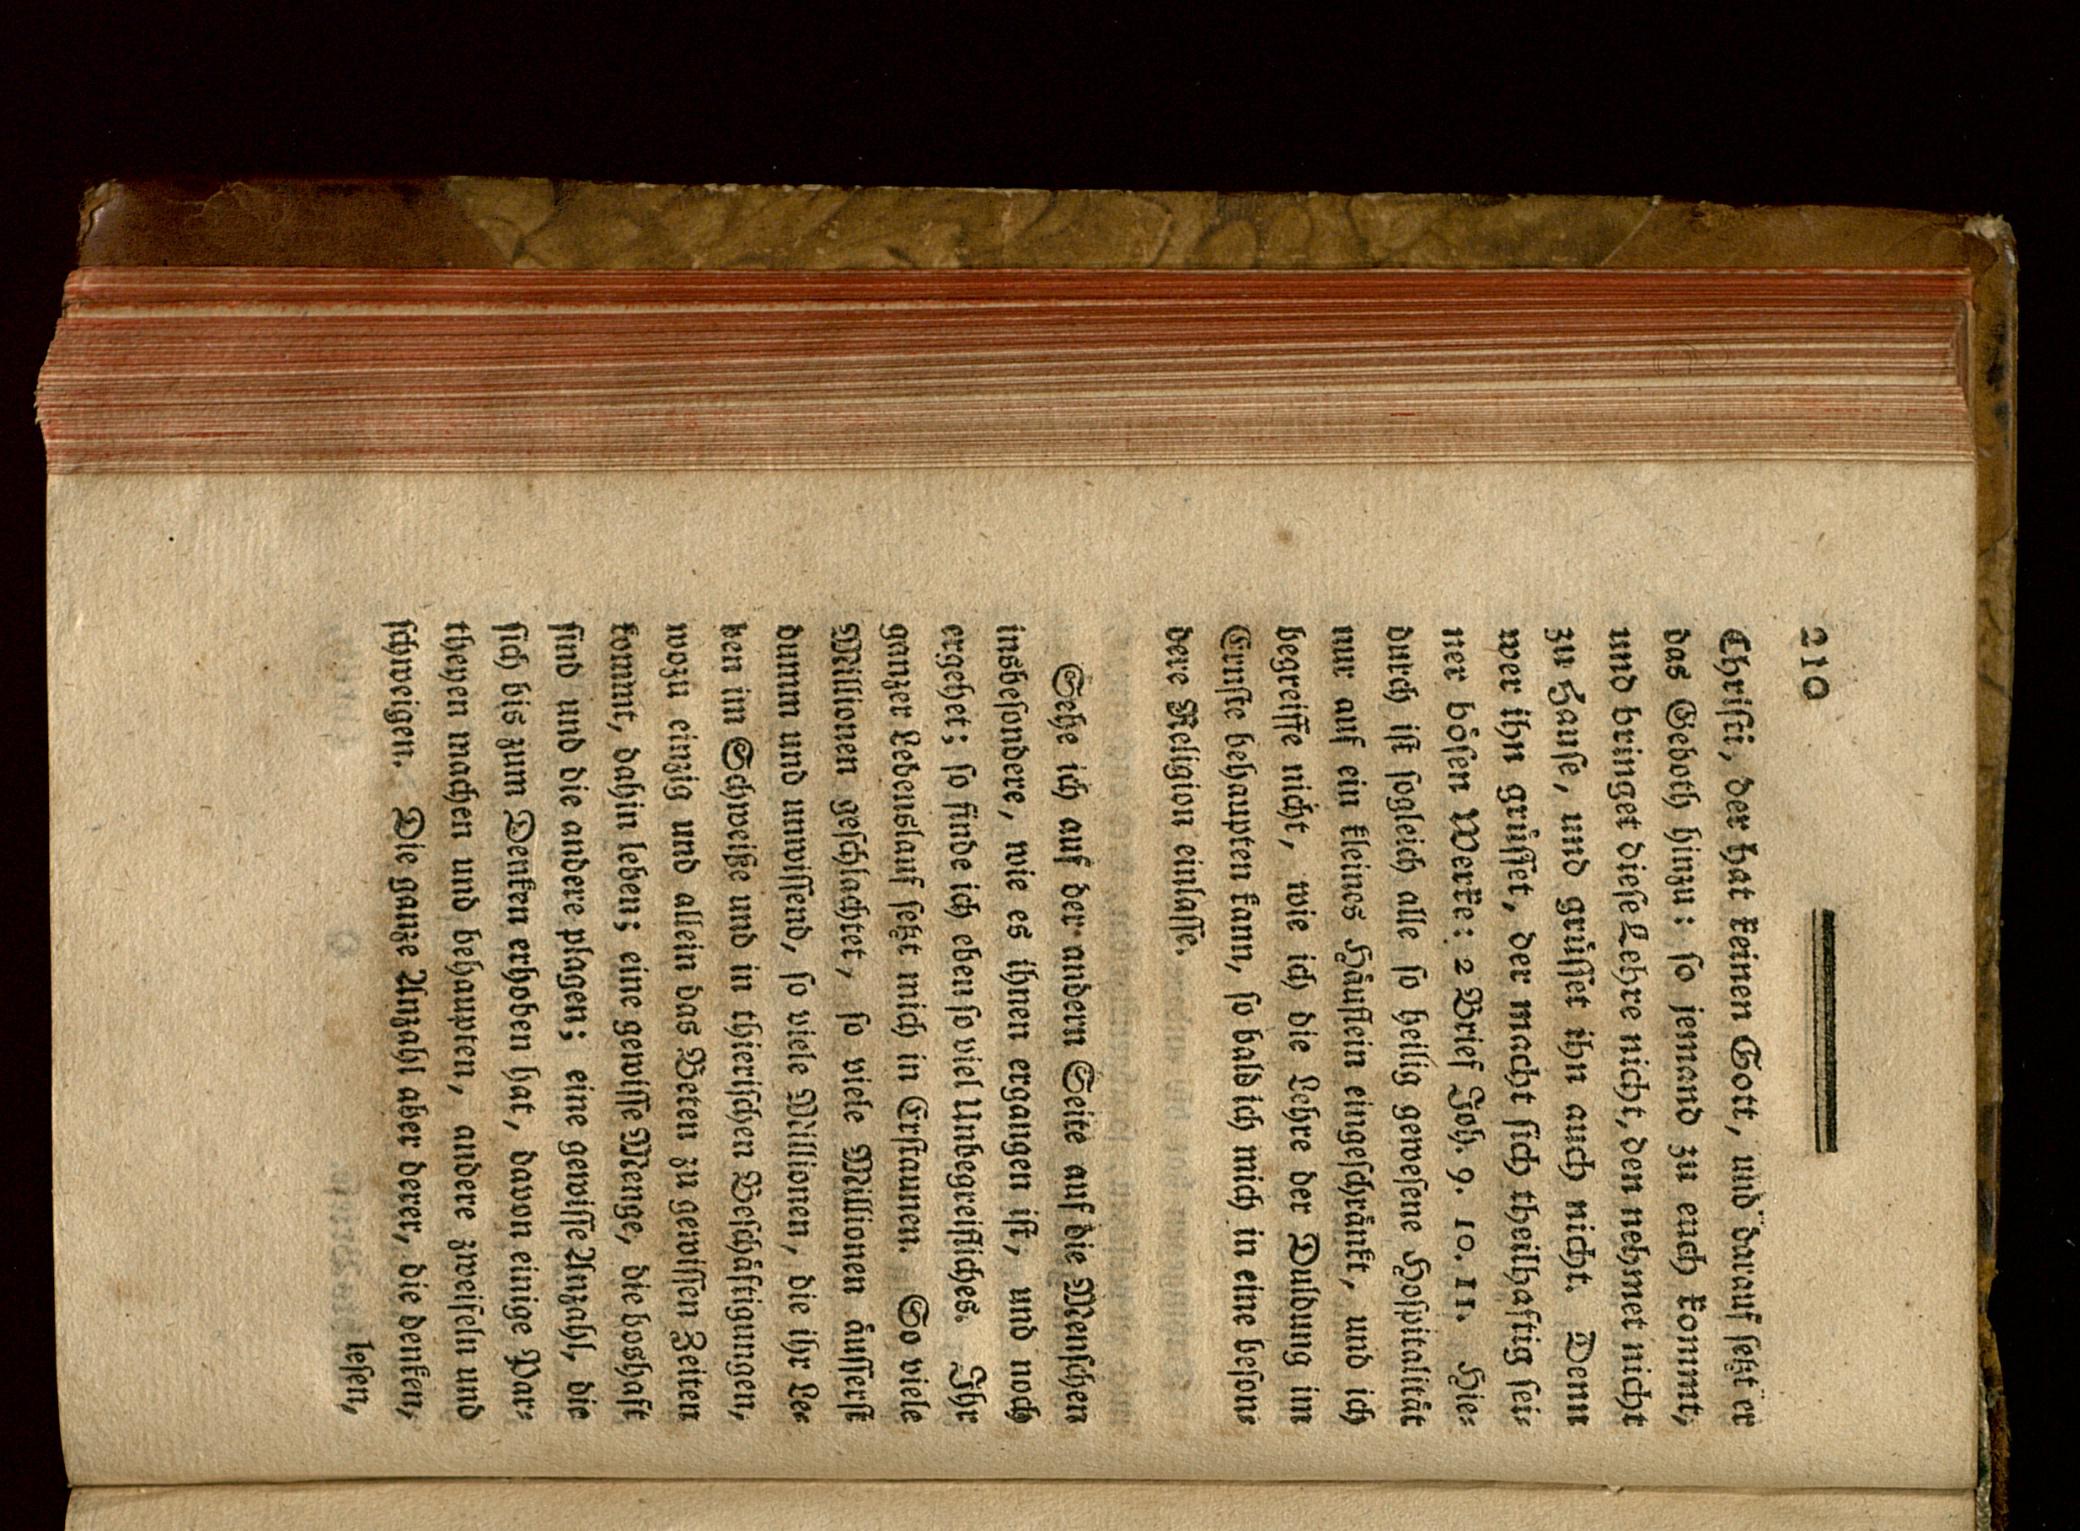 210
Chriſti, der hat keinen Gott, und darauf ſetzt er
das Geboth hinzu: ſo jemand zu euch kommt,
und bringet dieſe Lehre nicht, den nehmet nicht
zu Hauſe, und grüſſet ihn auch nicht. Denn
wer ihn grüſſet, der macht ſich theilhaftig ſei-
ner böſen Werke: 2 Brief Joh. 9. 10. 11. Hie-
durch iſt ſogleich alle ſo heilig geweſene Hoſpitalität
nur auf ein kleines Häuflein eingeſchränkt, und ich
begreiffe nicht, wie ich die Lehre der Duldung im
Ernſte behaupten kann, ſo bald ich mich in eine beſon-
dere Religion einlaſſe.
Sehe ich auf der andern Seite auf die Menſchen
insbeſondere, wie es ihnen ergangen iſt, und noch
ergehet; ſo finde ich eben ſo viel Unbegreifliches. Ihr
ganzer Lebenslauf ſetzt mich in Erſtaunen. So viele
Millionen geſchlachtet, ſo viele Millionen äuſſerſt
dumm und unwiſſend, ſo viele Millionen, die ihr Le-
ben im Schweiße und in thieriſchen Beſchäftigungen,
wozu einzig und allein das Beten zu gewiſſen Zeiten
kommt, dahin leben; eine gewiſſe Menge, die boshaft
ſind und die andere plagen; eine gewiſſe Anzahl, die
ſich bis zum Denken erhoben hat, davon einige Par-
theyen machen und behaupten, andere zweifeln und
ſchweigen. Die ganze Anzahl aber derer, die denken,
leſen,